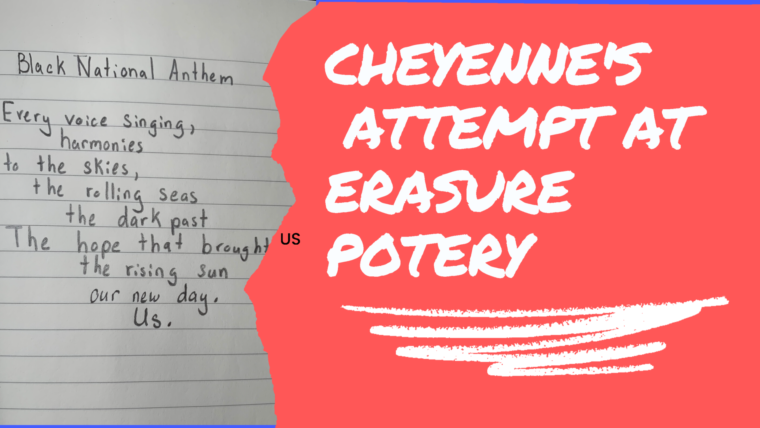 Black National Anthem
Every voice singing,
harmonies
to the skies,
the rolling seas
the dark past
The hope that brought US
the rising sun
our new day.
Us.
CHEYENNE'S
ATTEMPT AT
ERASURE
POTERY